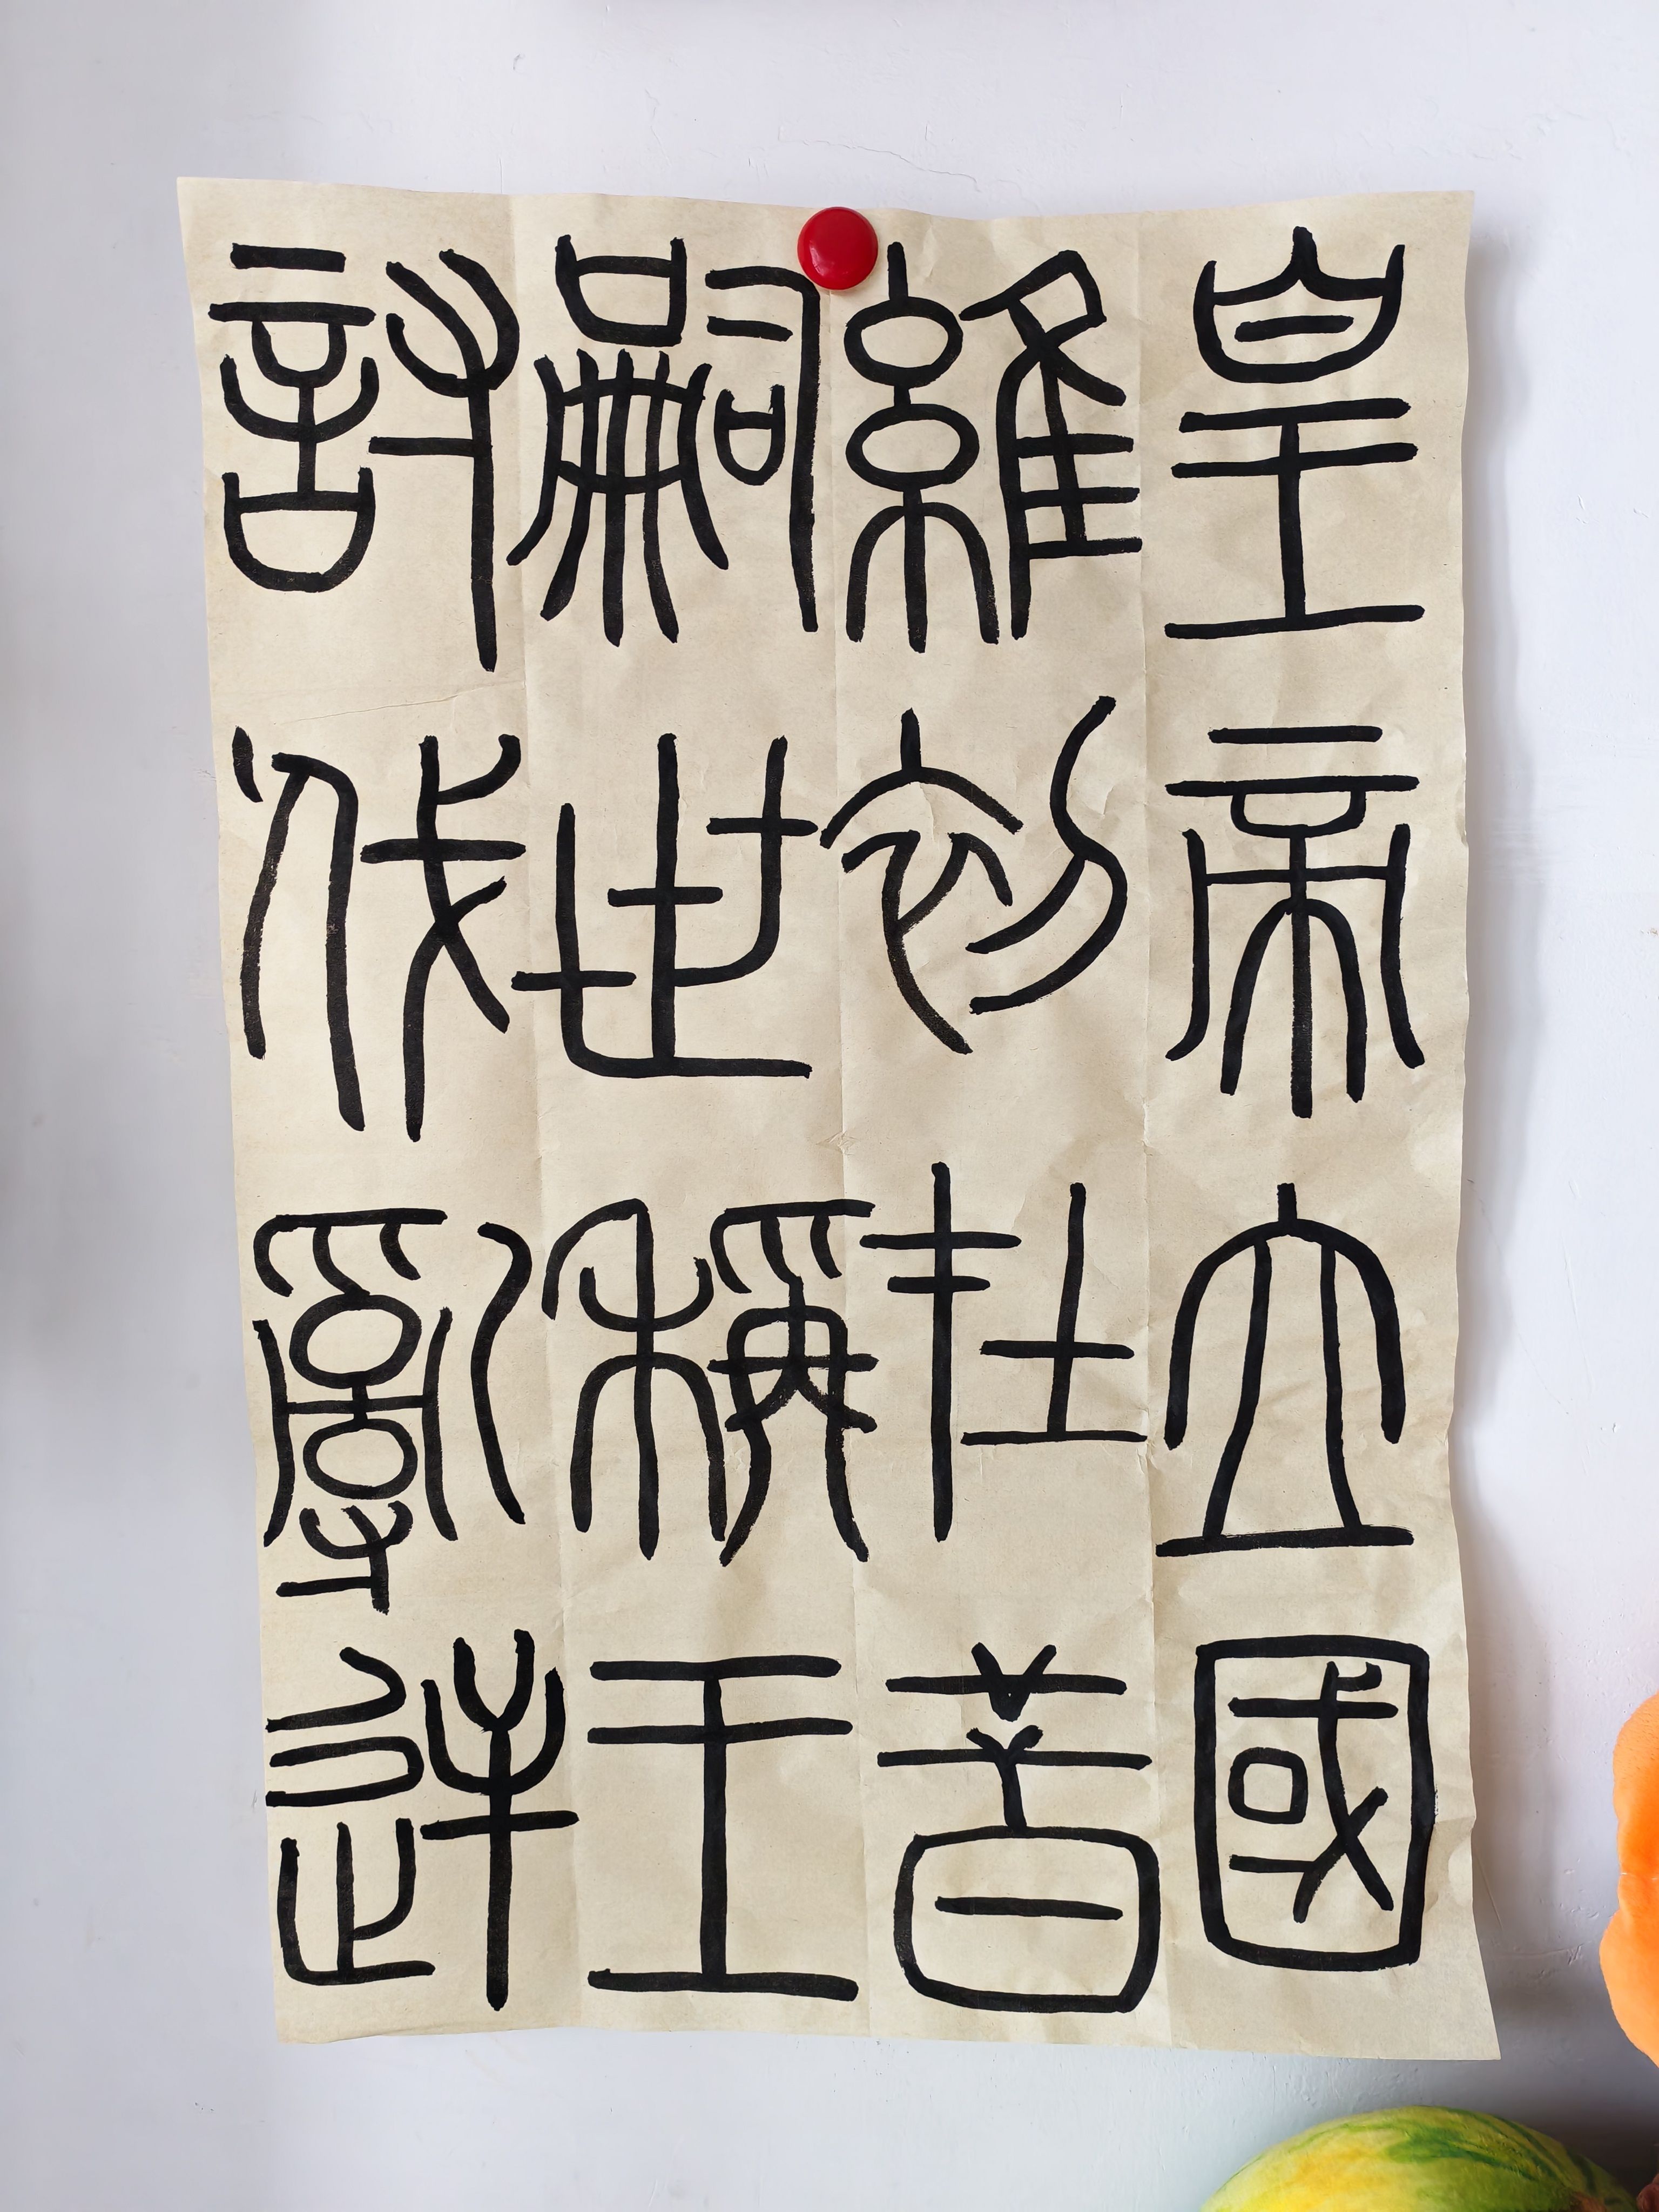 皇帝立國
維初在昔
嗣世稱王
討伐亂逆